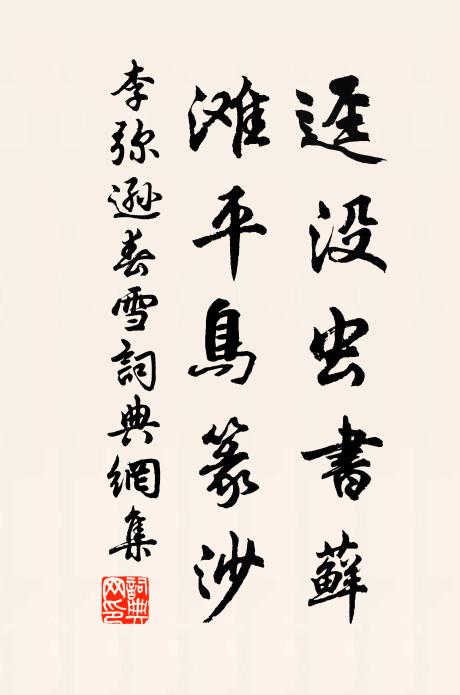 逕没虫書蘚
滩平鳥篆沙
李弥遜春雪詞典網集
詞典網印